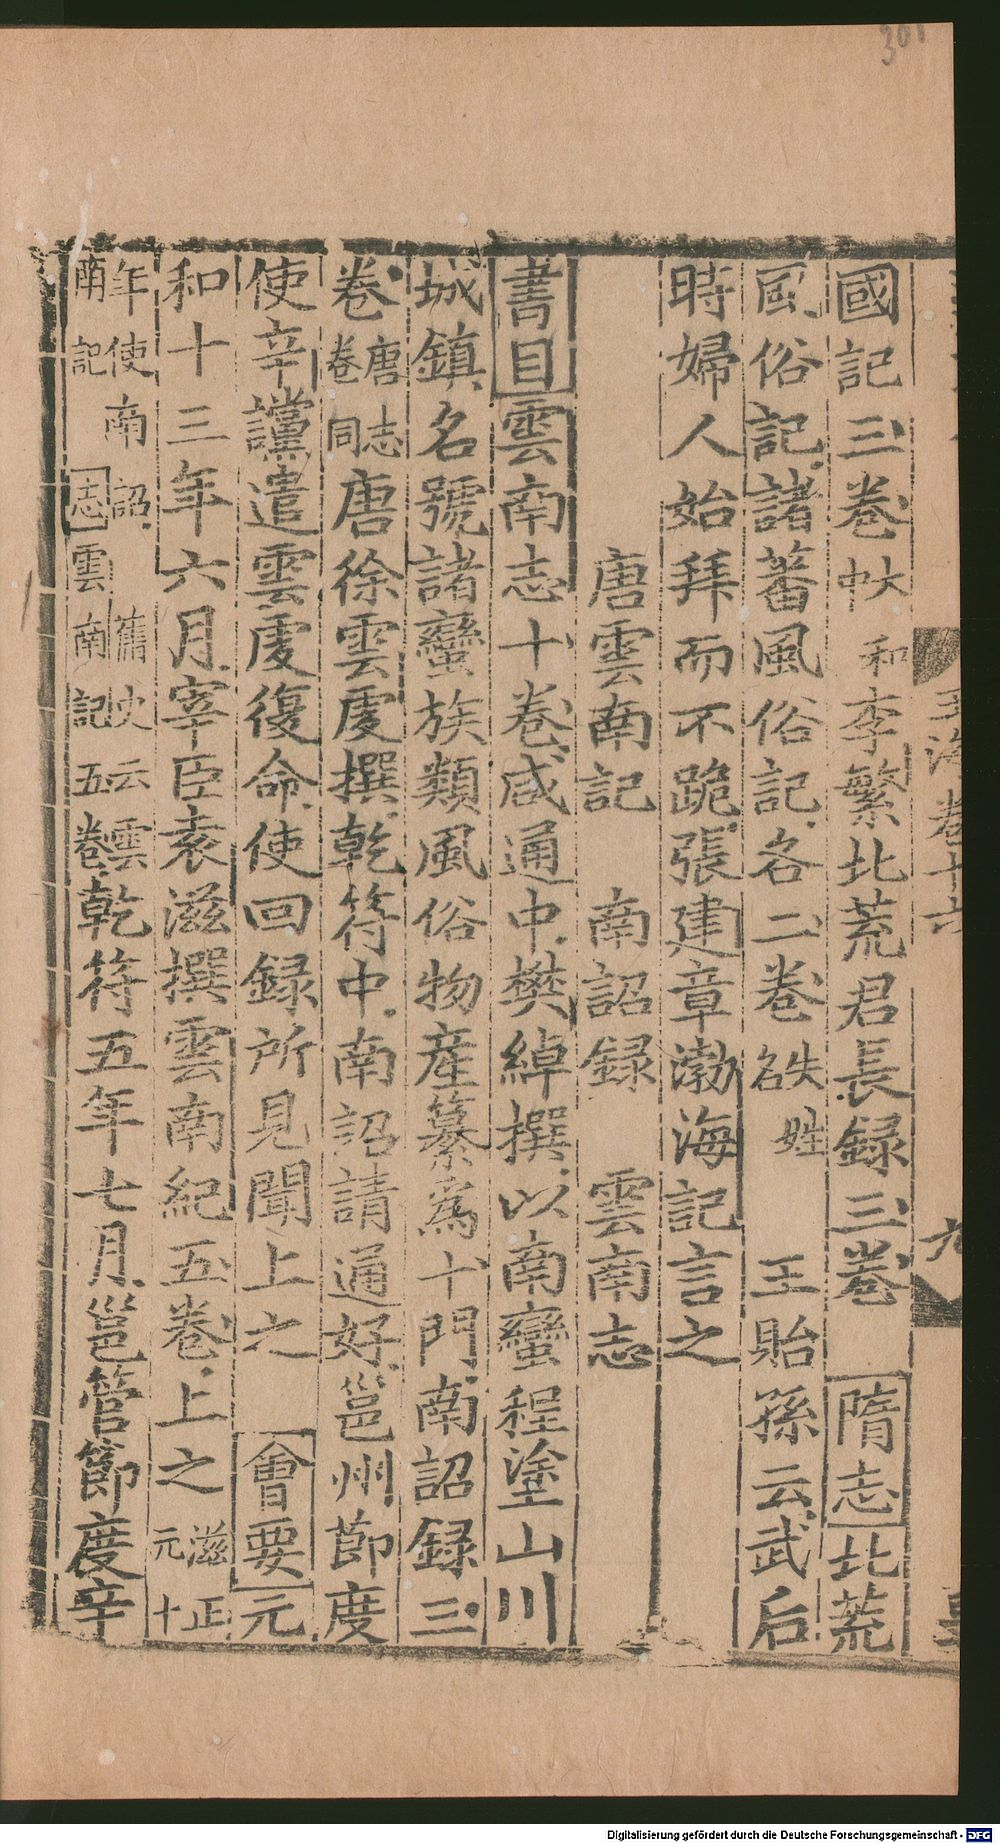 國記三卷大和中李繁北荒君長録三卷隋志北荒
風俗記諸蕃風俗記各二卷失姓名王貽孫云武后
時婦人始拜而不跪張建章渤海記言之
唐雲南記 南詔録 雲南志
書目雲南志十卷咸通中樊綽撰以南蠻程塗山川
城鎮名號諸蠻族類風俗物產纂爲十門南詔録三
卷唐志卷同唐徐雲虔撰乾符中南詔請通好邕州節度
使辛讜遣雲虔復命使回録所見聞上之會要元
和十三年六月宰臣袁滋撰雲南紀五卷上之滋正元十
年使南詔舊史云雲南記志雲南記五卷乾符五年七月邕管節度辛
玉海卷十六
九
301
Digitalisierung gefördert durch die Deutsche Forschungsgemeinschaft - DFG